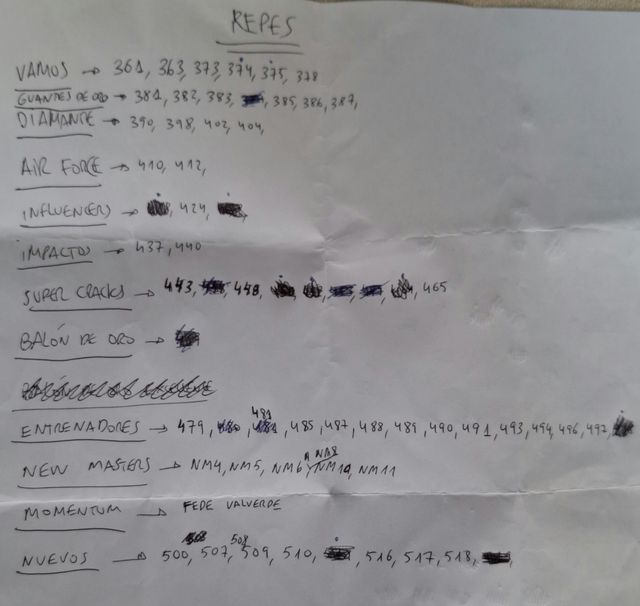 REPES
VAMOS → 361, 363, 373, 374, 375, 378
GUANTES DE ORO → 381, 382, 383, 385, 386, 387,
DIAMANTE → 390, 398, 402, 404,
AIR FORCE → 410, 412,
INFLUENCERS → 424,
IMPACTOS → 437, 440
SUPER CRACKS → 443, 448, 465
BALÓN DE ORO →
481
ENTRENADORES → 479, 485, 487, 488, 489, 490, 491, 493, 494, 496, 497,
NEW MASTERS → NM4, NM5, NM6, NM10, NM11
MOMENTUM → FEDE VALVERDE
508
NUEVOS → 500, 507, 509, 510, 516, 517, 518,